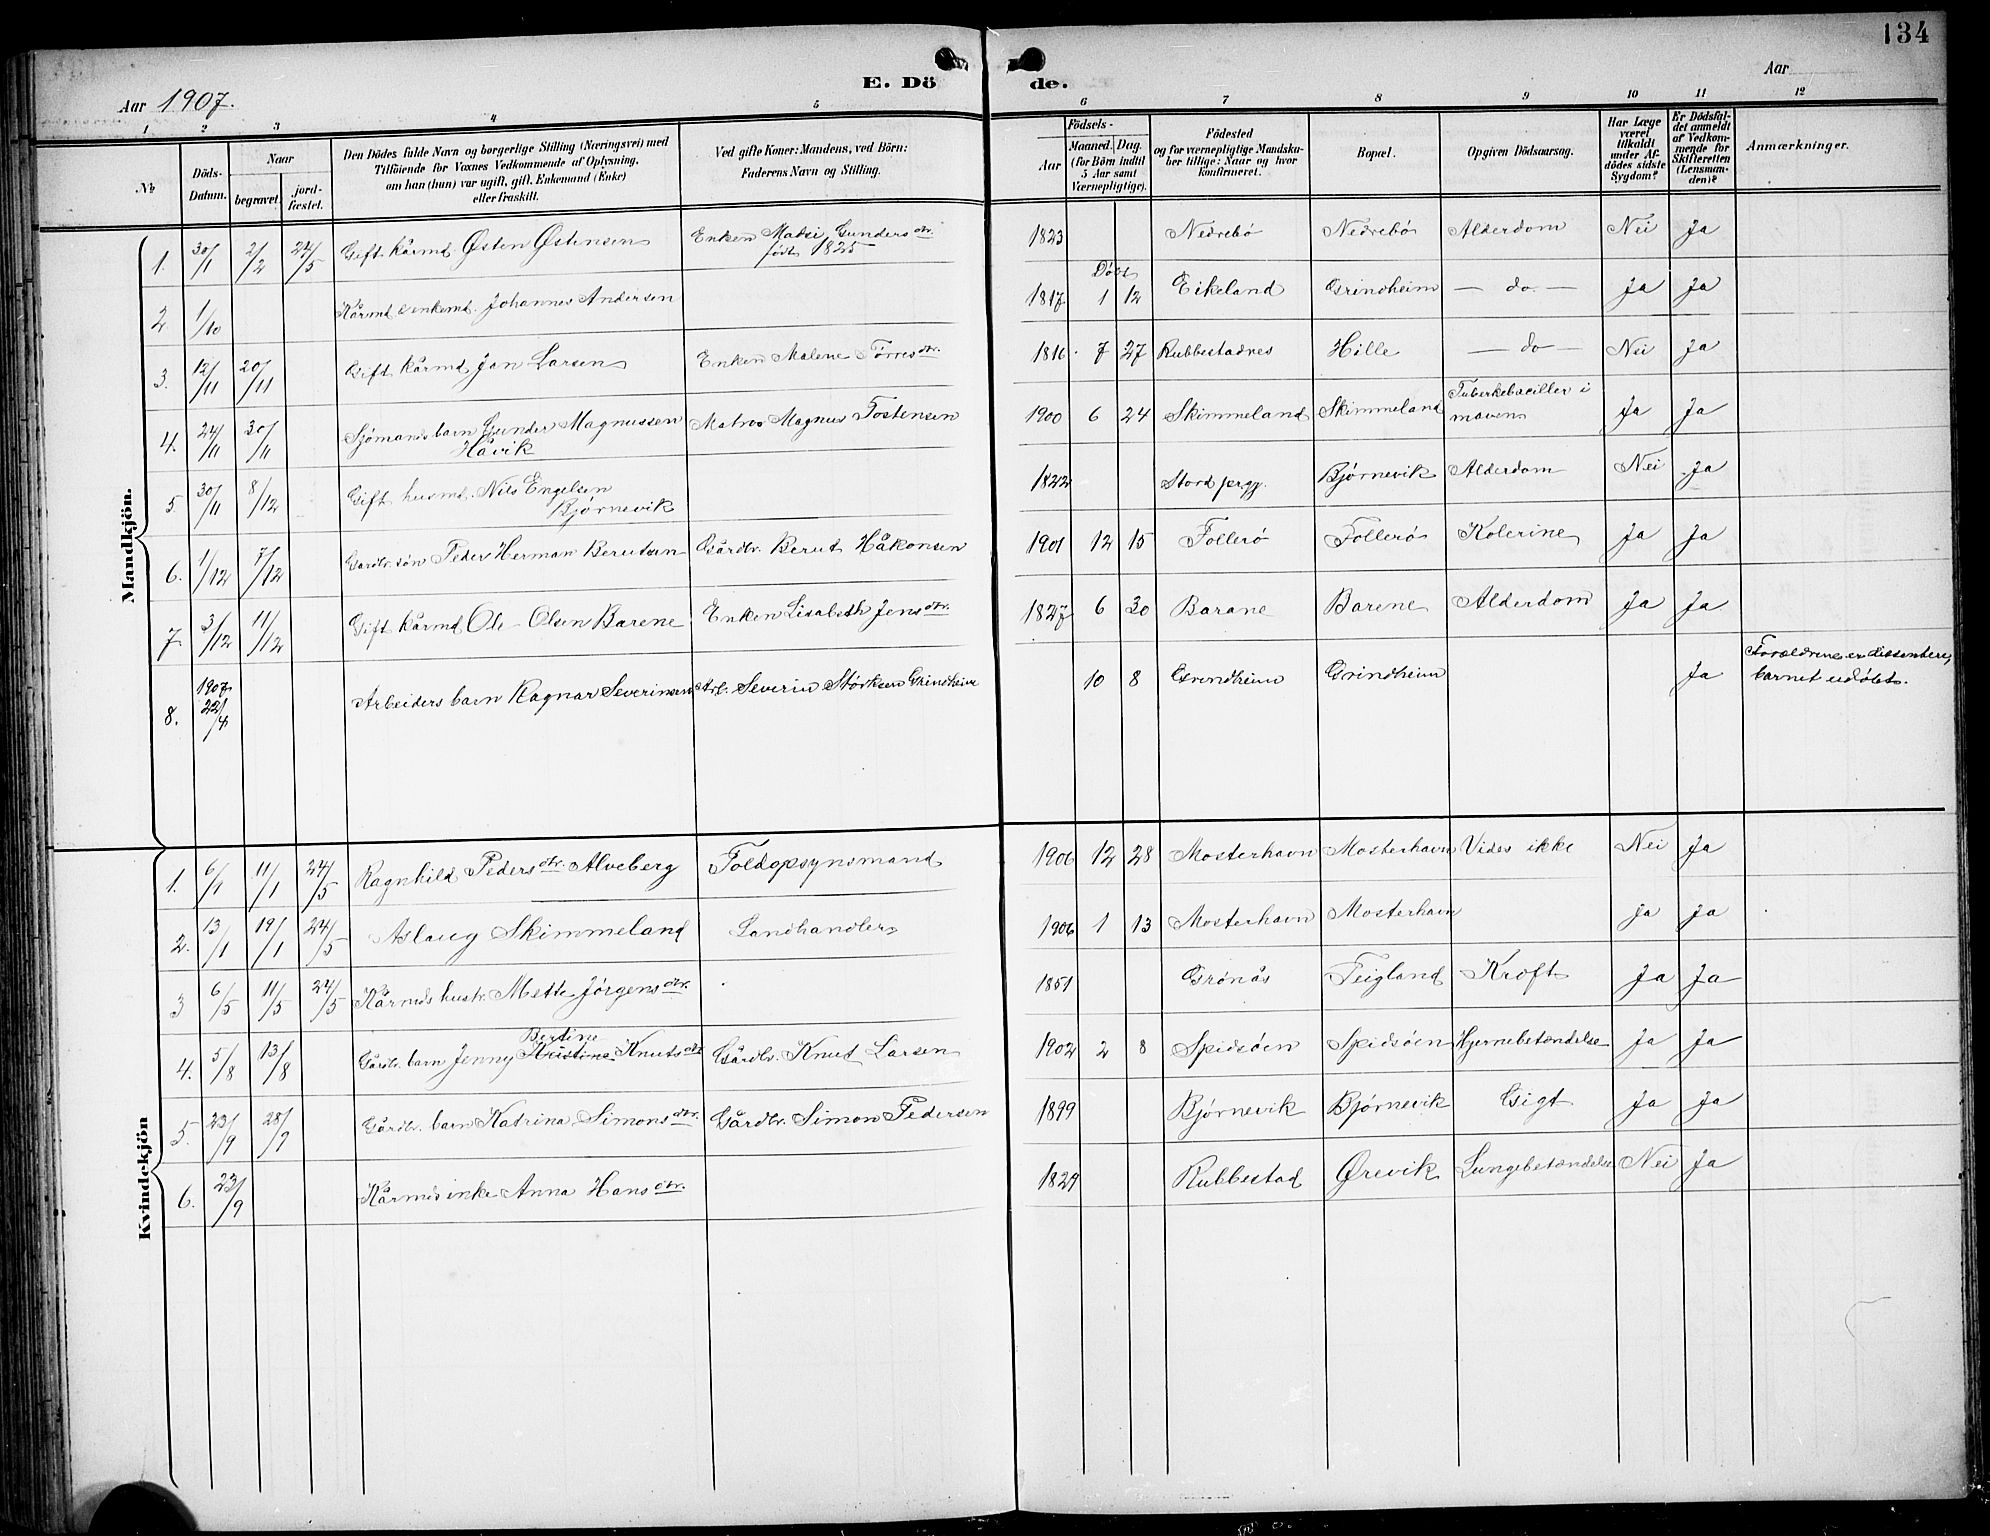 134
E. Döde.
Aar 1907.
Aar
1 2 3 4 5 6 7 8 9 10 11 12
No
Döds-Datum.
Naar
begravet.
jord-fæstet.
Den Dödes fulde Navn og borgerlige Stilling (Næringsvei) med
Tilföiende for Voxnes Vedkommende af Oplysning,
om han (hun) var ugift, gift, Enkemand (Enke)
eller fraskilt.
Ved gifte Koner: Mandens, ved Börn:
Faderens Navn og Stilling.
Födsels-
Aar
Maaned. Dag.
(for Börn indtil
5 Aar samt
Værnepligtige).
Födested
og for værnepligtige Mandsku-
ber tillige: Naar og hvor
konfirmeret.
Bopæl.
Opgiven Dödsaarsag.
Har Læge
været
tilkaldt
under Af-
dödes sidste
Sygdom?
Er Dödsfal-
det anmeldt
af Vedkom-
mende for
Skifteretten
(Lensman-
den)?
Anmærkninger.
Mandkjön.
1. 30/1 2/2 24/5 Gift kårmd Østen Østensen Enken Matsi Gundersdtr. født 1825 1823 Nedrebø Nedrebø Alderdom Nei Ja
2 1/10 Kårmd & enkemd. Johannes Andersen 1817 Døbt 1 12 Eikeland Grindheim — do. — Ja Ja
3. 12/11 20/11 Gift kårmd Jan Larsen Enken Malene Tørresdtr. 1816 7 27 Rubbestadnes Hille — do — Nei Ja
4. 24/11 30/11 Sjømands barn Gunder Magnussen Håvik Matros Magnus Tostensen 1900 6 24 Skimmeland Skimmeland Tuberkebaciller i maven Ja Ja
5 30/11 8/12 Gift husmd. Nils Engelsen Bjørnevik 1822 Stord prgj. Bjørnevik Alderdom Nei Ja
6. 1/12 7/12 Gardbr. søn Peder Herman Berutsen Gårdbr. Berut Håkonsen 1901 12 15 Follerø Follerø Kolerine Ja Ja
7. 3/12 11/12 Gift kårmd Ole Olsen Barene Enken Lisabeth Jensdtr. 1827 6 30 Barane Barene Alderdom Ja Ja
8. 1907 22/4 Arbeiders barn Ragnar Severinsen Arb. Severin Størksen Grindheim 10 8 Grindheim Grindheim Ja Forældrene er dissentere, barnet udøbt.
Kvindekjön
1. 6/1 11/1 24/5 Ragnhild Pedersdtr. Alveberg Toldopsynsmand 1906 12 28 Mosterhavn Mosterhavn Vides ikke Nei Ja
2. 13/1 19/1 24/5 Aslaug Skimmeland Landhandler 1906 1 13 Mosterhavn Mosterhavn Ja Ja
3 6/5 11/5 24/5 Kårmds hustr. Mette Jørgensdtr. 1851 Grønås Teigland Kræft Ja Ja
4. 5/8 13/8 Gårdbr. barn Jenny Kristine Bertine Knutsdtr Gårdbr. Knut Larsen 1902 2 8 Spidsøen Spidsøen Hjernebetændelse Ja Ja
5. 23/9 28/9 Gårdbr. barn Katrina Simonsdtr. Gårdbr. Simon Pedersen 1899 Bjørnevik Bjørnevik Gigt Ja Ja
6. 23/9 Kårmds inke Anna Hansdtr. 1829 Rubbestad Ørevik Lungebetændelse Nei Ja